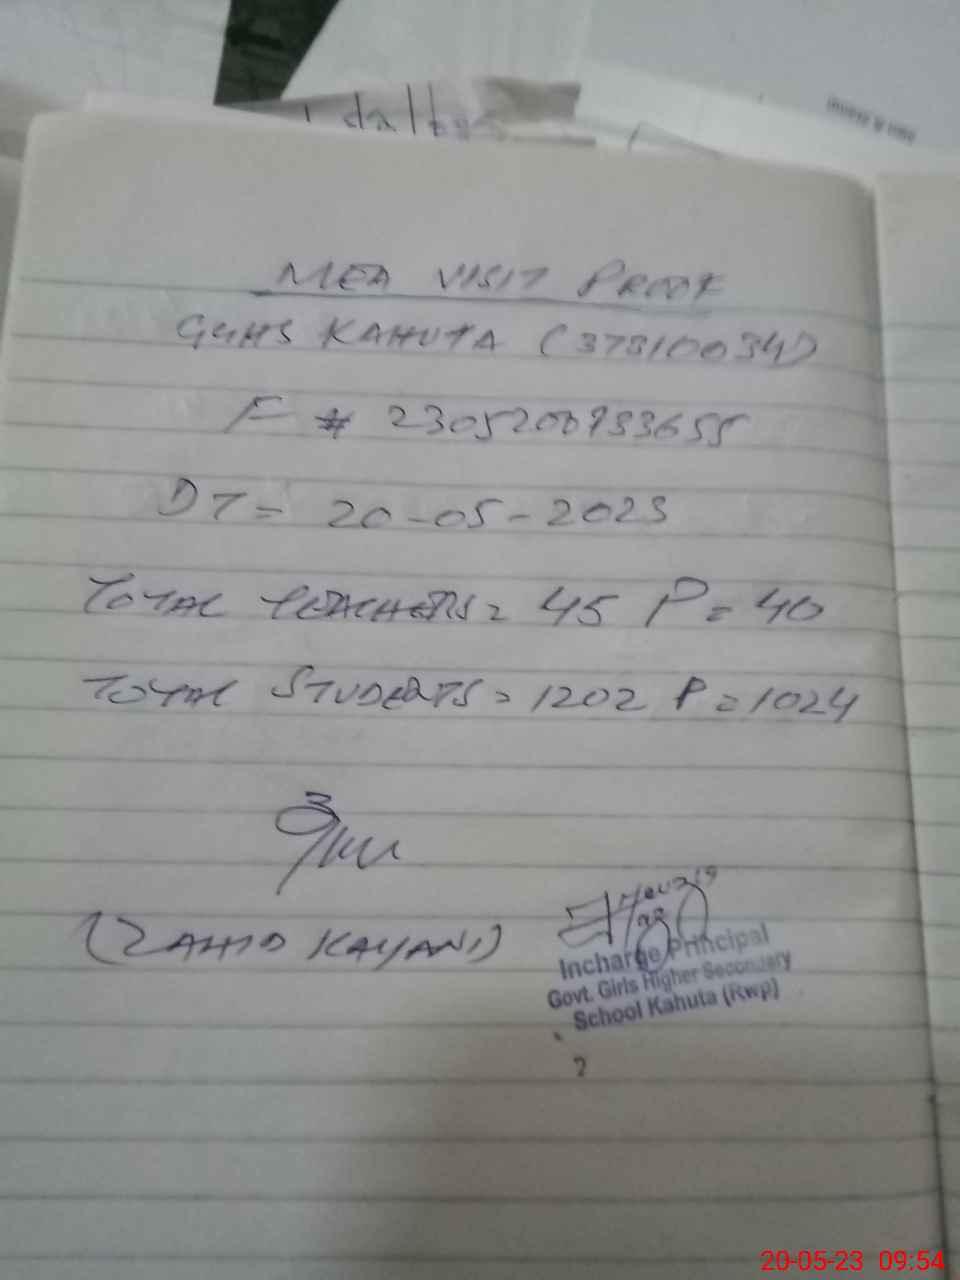 MEA VISIT PROOF
GGHS KAHUTA (37310034)
F # 2305200933655
DT = 20-05-2023
TOTAL TEACHERS = 45 P = 40
TOTAL STUDENTS = 1202 P = 1024
(ZAHID KAYANI)
Incharge Principal
Govt. Girls Higher Secondary
School Kahuta (Rwp)
20-05-23 09:54